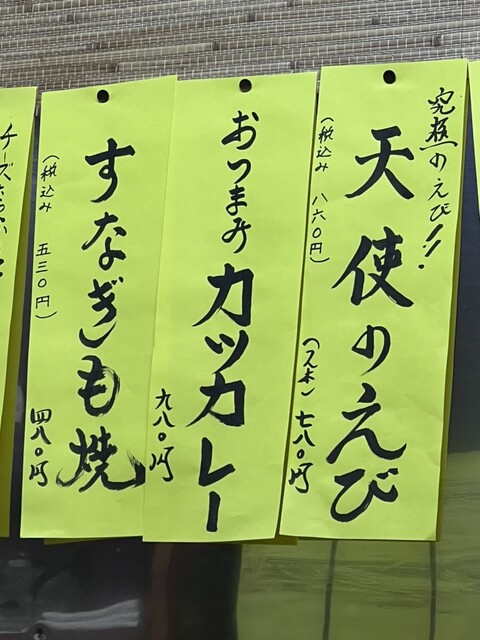 究極のえび!!
天使のえび
(2本) 七八〇円
(税込み 八六〇円)
おつまみ
カツカレー
九八〇円
すなぎも焼
四八〇円
(税込み 五三〇円)
チーズ